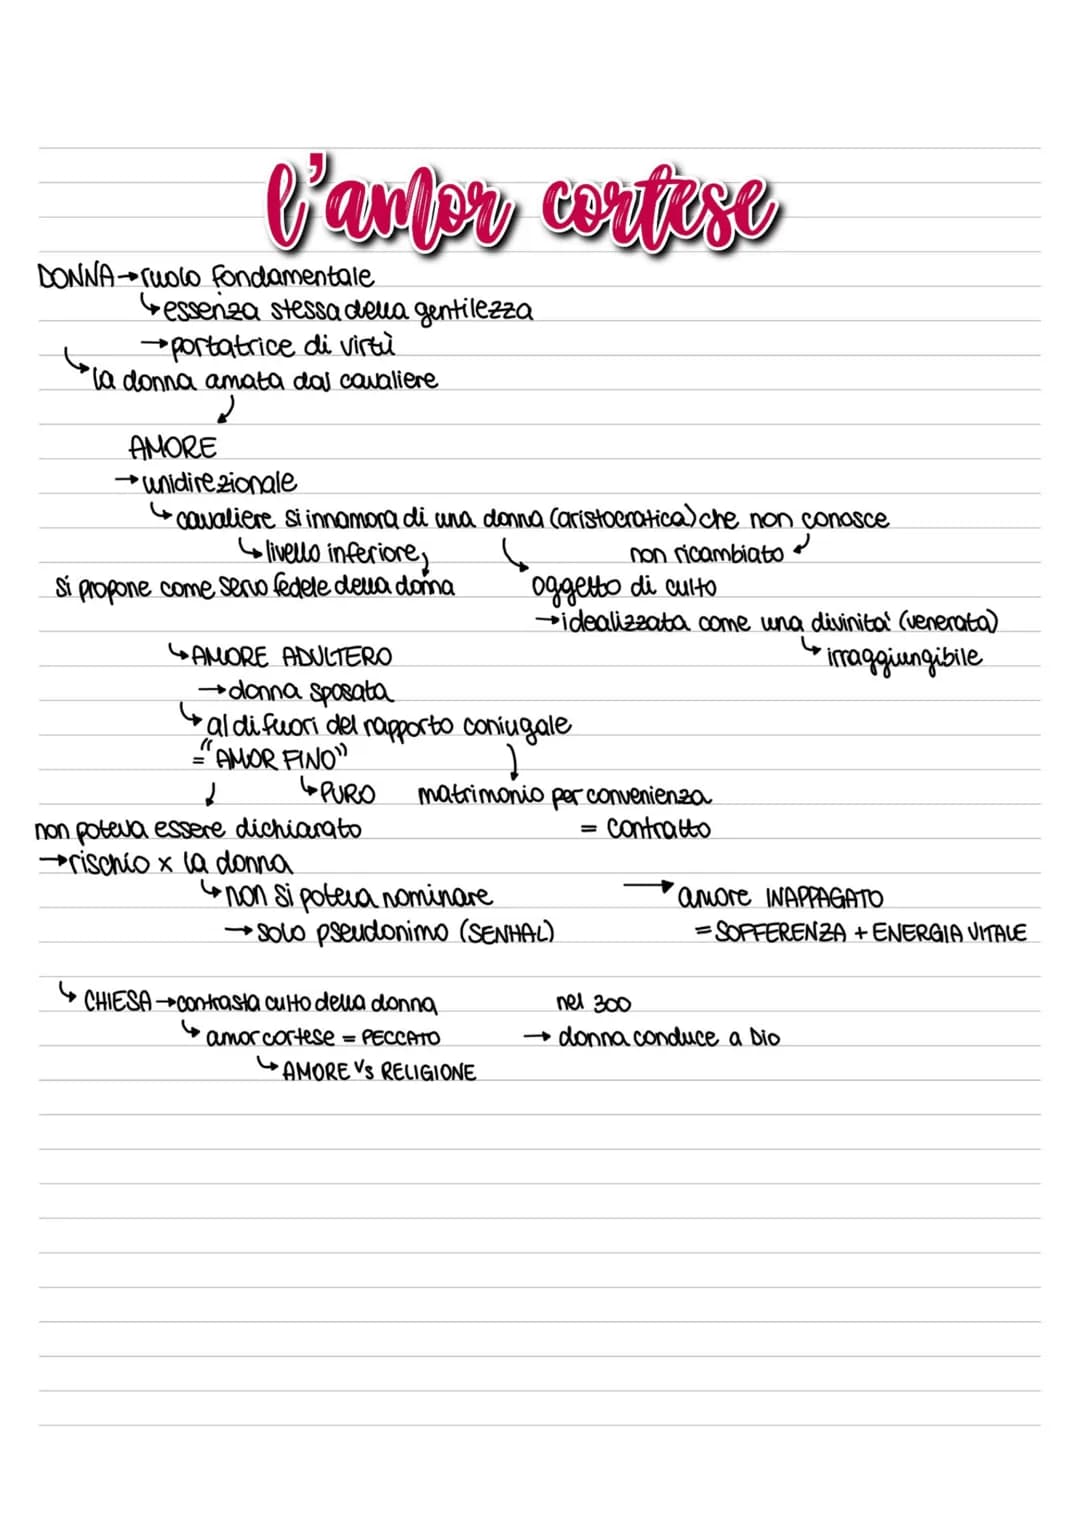 l'amor cortese
DONNA→ruolo fondamentale
↳essenza stessa della gentilezza
→portatrice di virtù
↳la donna amata dal cavaliere
↓
AMORE
→unidirezionale
↳cavaliere si innamora di una donna (aristocratica) che non conosce
↳livello inferiore, non ricambiato
si propone come servo fedele della donna oggetto di culto
→idealizzata come una divinita' (venerata)
↳AMORE ADULTERO ↳irraggiungibile
→donna sposata
↳al di fuori del rapporto coniugale
= "AMOR FINO"
↳PURO matrimonio per convenienza
non poteva essere dichiarato = contratto
→rischio x la donna
↳non si poteva nominare → amore INAPPAGATO
→solo pseudonimo (SENHAL) = SOFFERENZA + ENERGIA VITALE
↳CHIESA→contrasta culto della donna nel 300
↳amor cortese = PECCATO → donna conduce a Dio
↳AMORE Vs RELIGIONE